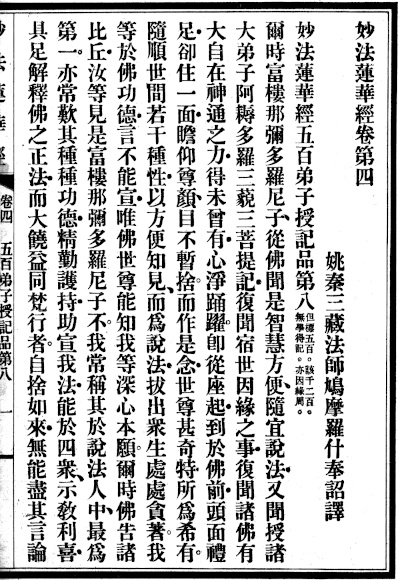 妙法蓮華經卷第四
姚秦三藏法師鳩摩羅什奉詔譯
妙法蓮華經五百弟子授記品第八但標五百。該千二百。無學得記。亦因緣周。
爾時富樓那彌多羅尼子、從佛聞是智慧方便、隨宜說法。又聞授諸
大弟子阿耨多羅三藐三菩提記。復聞宿世因緣之事。復聞諸佛有
大自在神通之力。得未曾有。心淨踊躍。即從座起。到於佛前。頭面禮
足。卻住一面。瞻仰尊顏。目不暫捨。而作是念。世尊甚奇特。所為希有。
隨順世間若干種性。以方便知見、而為說法。拔出眾生處處貪著。我
等於佛功德。言不能宣。唯佛世尊能知我等深心本願。爾時佛告諸
比丘。汝等見是富樓那彌多羅尼子不。我常稱其於說法人中、最為
第一。亦常歎其種種功德。精勤護持、助宣我法。能於四眾、示教利喜。
具足解釋佛之正法。而大饒益同梵行者。自捨如來。無能盡其言論
妙法蓮華經
卷四
五百弟子授記品第八
一